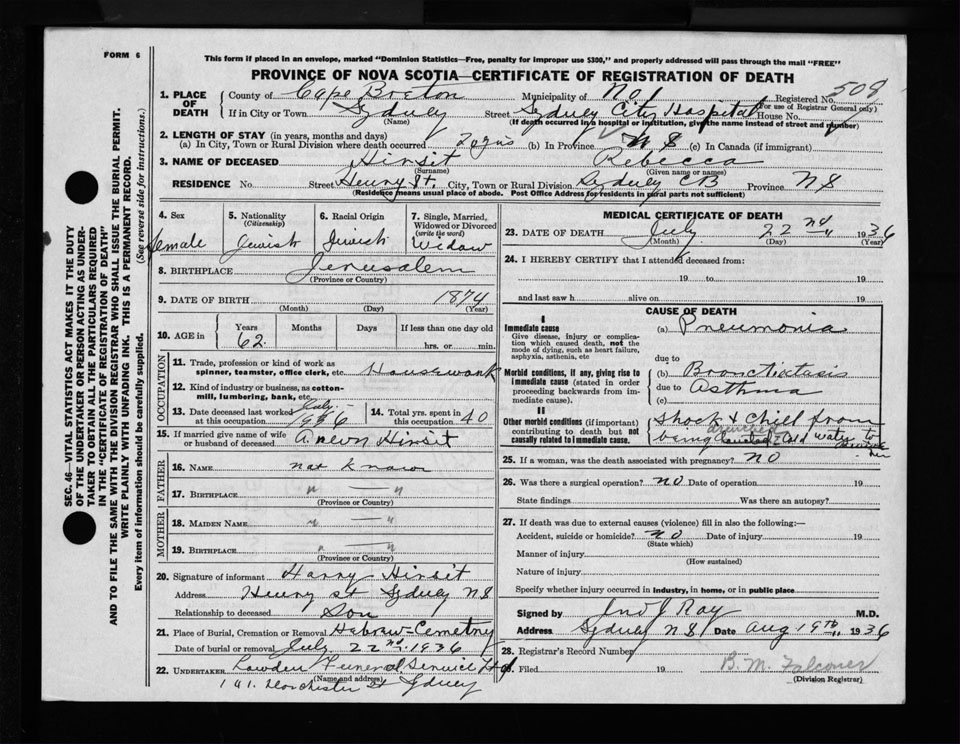 FORM 6
This form if placed in an envelope, marked "Dominion Statistics—Free, penalty for improper use $300," and properly addressed will pass through the mail "FREE"
PROVINCE OF NOVA SCOTIA—CERTIFICATE OF REGISTRATION OF DEATH
1. PLACE OF DEATH
County of Cape Breton Municipality of No 1 Registered No. 508
(For use of Registrar General only)
If in City or Town Sydney Street Sydney City Hospital House No.
(Name) (If death occurred in a hospital or institution, give the name instead of street and number)
2. LENGTH OF STAY (in years, months and days)
(a) In City, Town or Rural Division where death occurred (b) In Province N S (c) In Canada (if immigrant)
3. NAME OF DECEASED Hinsit Rebecca
(Surname) (Given name or names)
RESIDENCE No. Street Henry St. City, Town or Rural Division Sydney CB Province N S
(Residence means usual place of abode. Post Office Address for residents in rural parts not sufficient)
4. Sex
female
5. Nationality (Citizenship)
Jewish
6. Racial Origin
Jewish
7. Single, Married, Widowed or Divorced (write the word)
Widow
8. BIRTHPLACE Jerusalem
(Province or Country)
9. DATE OF BIRTH 1874
(Month) (Day) (Year)
10. AGE in Years 62 Months Days If less than one day old hrs. or min.
OCCUPATION
11. Trade, profession or kind of work as spinner, teamster, office clerk, etc. Housework
12. Kind of industry or business, as cotton-mill, lumbering, bank, etc.
13. Date deceased last worked at this occupation July 1936
14. Total yrs. spent in 40
15. If married give name of wife or husband of deceased Hinsit
FATHER
16. NAME not known
17. BIRTHPLACE " — "
(Province or Country)
MOTHER
18. MAIDEN NAME " — "
19. BIRTHPLACE " — "
(Province or Country)
20. Signature of informant Harry Hinsit
Address Henry St Sydney N S
Relationship to deceased Son
21. Place of Burial, Cremation or Removal Hebrew-Cemetry
Date of burial or removal July 22nd 1936
22. UNDERTAKER Lowden Funeral Service Ltd
(Name and address)
Dorchester St Sydney
MEDICAL CERTIFICATE OF DEATH
23. DATE OF DEATH July 22nd 1936
(Month) (Day) (Year)
24. I HEREBY CERTIFY that I attended deceased from:
19 to 19
and last saw h alive on 19
CAUSE OF DEATH
I
Immediate cause
Give disease, injury or complication which caused death, not the mode of dying, such as heart failure, asphyxia, asthenia, etc
(a) Pneumonia
due to
Morbid conditions, if any, giving rise to immediate cause (stated in order proceeding backwards from immediate cause).
(b) Bronchiectesis
due to Asthma
(c)
II
Other morbid conditions (if important) contributing to death but not causally related to immediate cause.
Shock & chill from
being cold water to
her
25. If a woman, was the death associated with pregnancy? NO
26. Was there a surgical operation? NO Date of operation 19
State findings Was there an autopsy?
27. If death was due to external causes (violence) fill in also the following:—
Accident, suicide or homicide? NO Date of injury 19
(State which)
Manner of injury
(How sustained)
Nature of injury
Specify whether injury occurred in Industry, in home, or in public place
Signed by Jno J Roy M.D.
Address Sydney N S Date Aug 19th 1936
28. Registrar's Record Number
Filed 19 B. M. Falconer
(Division Registrar)
SEC. 46—VITAL STATISTICS ACT MAKES IT THE DUTY
OF THE UNDERTAKER OR PERSON ACTING AS UNDER-
TAKER TO OBTAIN ALL THE PARTICULARS REQUIRED
IN THE "CERTIFICATE OF REGISTRATION OF DEATH"
AND TO FILE THE SAME WITH THE DIVISION REGISTRAR WHO SHALL ISSUE THE BURIAL PERMIT.
WRITE PLAINLY WITH UNFADING INK. THIS IS A PERMANENT RECORD.
Every item of information should be carefully supplied. (See reverse side for instructions.)